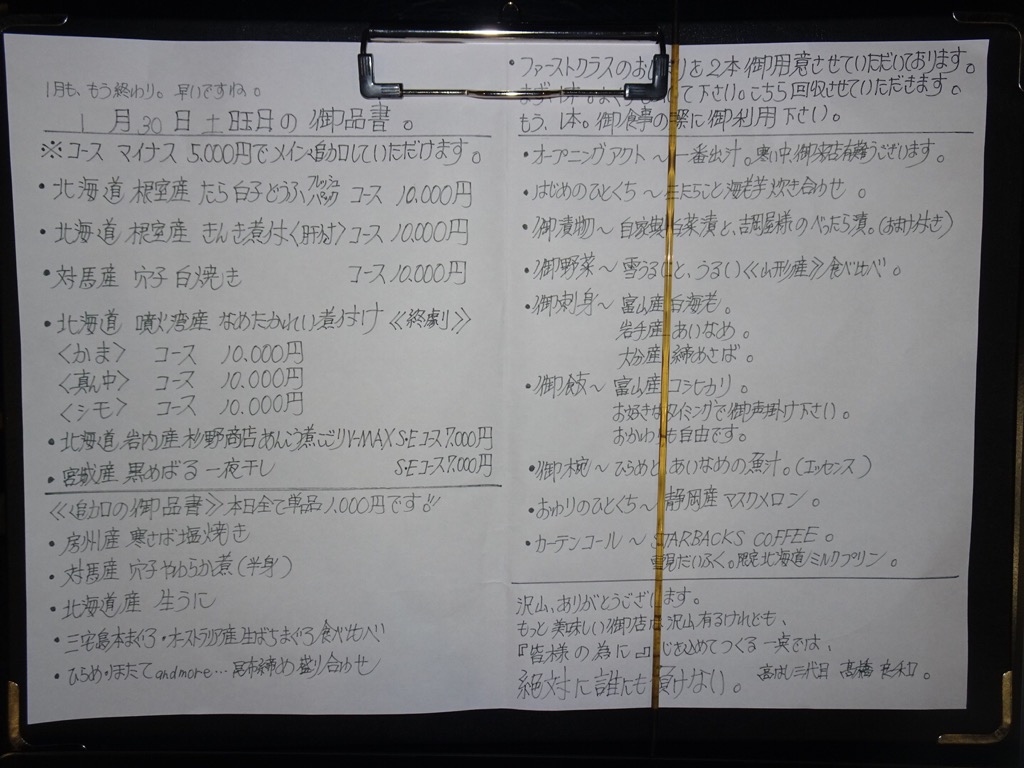 1月も、もう終わり。早いですね。
1月30日土曜日の御品書。
※コース マイナス 5.000円でメイン追加していただけます。
・北海道 根室産 たら白子どうふ フレッシュパック コース 10.000円
・北海道 根室産 きんき煮付〈肝付〉コース 10.000円
・対馬産 穴子 白焼き コース 10.000円
・北海道 噴火湾産 なめたかれい煮付け《終劇》
〈かま〉 コース 10.000円
〈真ん中〉 コース 10.000円
〈シモ〉 コース 10.000円
・北海道 岩内産 杉野商店あんこう煮こごりV-MAX S・Eコース7.000円
・宮城産 黒めばる 一夜干し S・Eコース7.000円
《追加の御品書》本日全て単品1.000円です!!
・房州産 寒さば塩焼き
・対馬産 穴子やわらか煮(半身)
・北海道産 生うに
・三宅島本まぐろ・オーストラリア産生ばちまぐろ食べ比べ
・ひらめ・ほたて and more… 昆布締め盛り合わせ
・ファーストクラスのおしぼりを2本御用意させていただいております。
まず、1本。 下さい。こちら回収させていただきます。
もう、1本。御食事の際に御利用下さい。
・オープニングアクト～一番出汁。寒い中、御来店有難うございます。
・はじめのひとくち～生たらこと海老芋炊き合わせ。
・御漬物～自家製白菜漬と、吉岡屋様のべったら漬。(おまけ付き)
・御野菜～雪うるいと、うるい《山形産》食べ比べ。
・御刺身～富山産白海老。
岩手産あいなめ。
大分産 締めさば。
・御飯～富山産コシヒカリ。
お好きなタイミングで御声掛け下さい。
おかわりも自由です。
・御椀～ひらめと、あいなめの魚汁。(エッセンス)
・おわりのひとくち～静岡産マスクメロン。
・カーテンコール～STARBACKS COFFEE。
雪見だいふく。限定北海道ミルクプリン。
沢山、ありがとうございます。
もっと美味しい御店は、沢山有るけれども、
『皆様の為に…』心を込めてつくる一点では、
絶対に誰にも負けない。 高はし三代目 髙橋